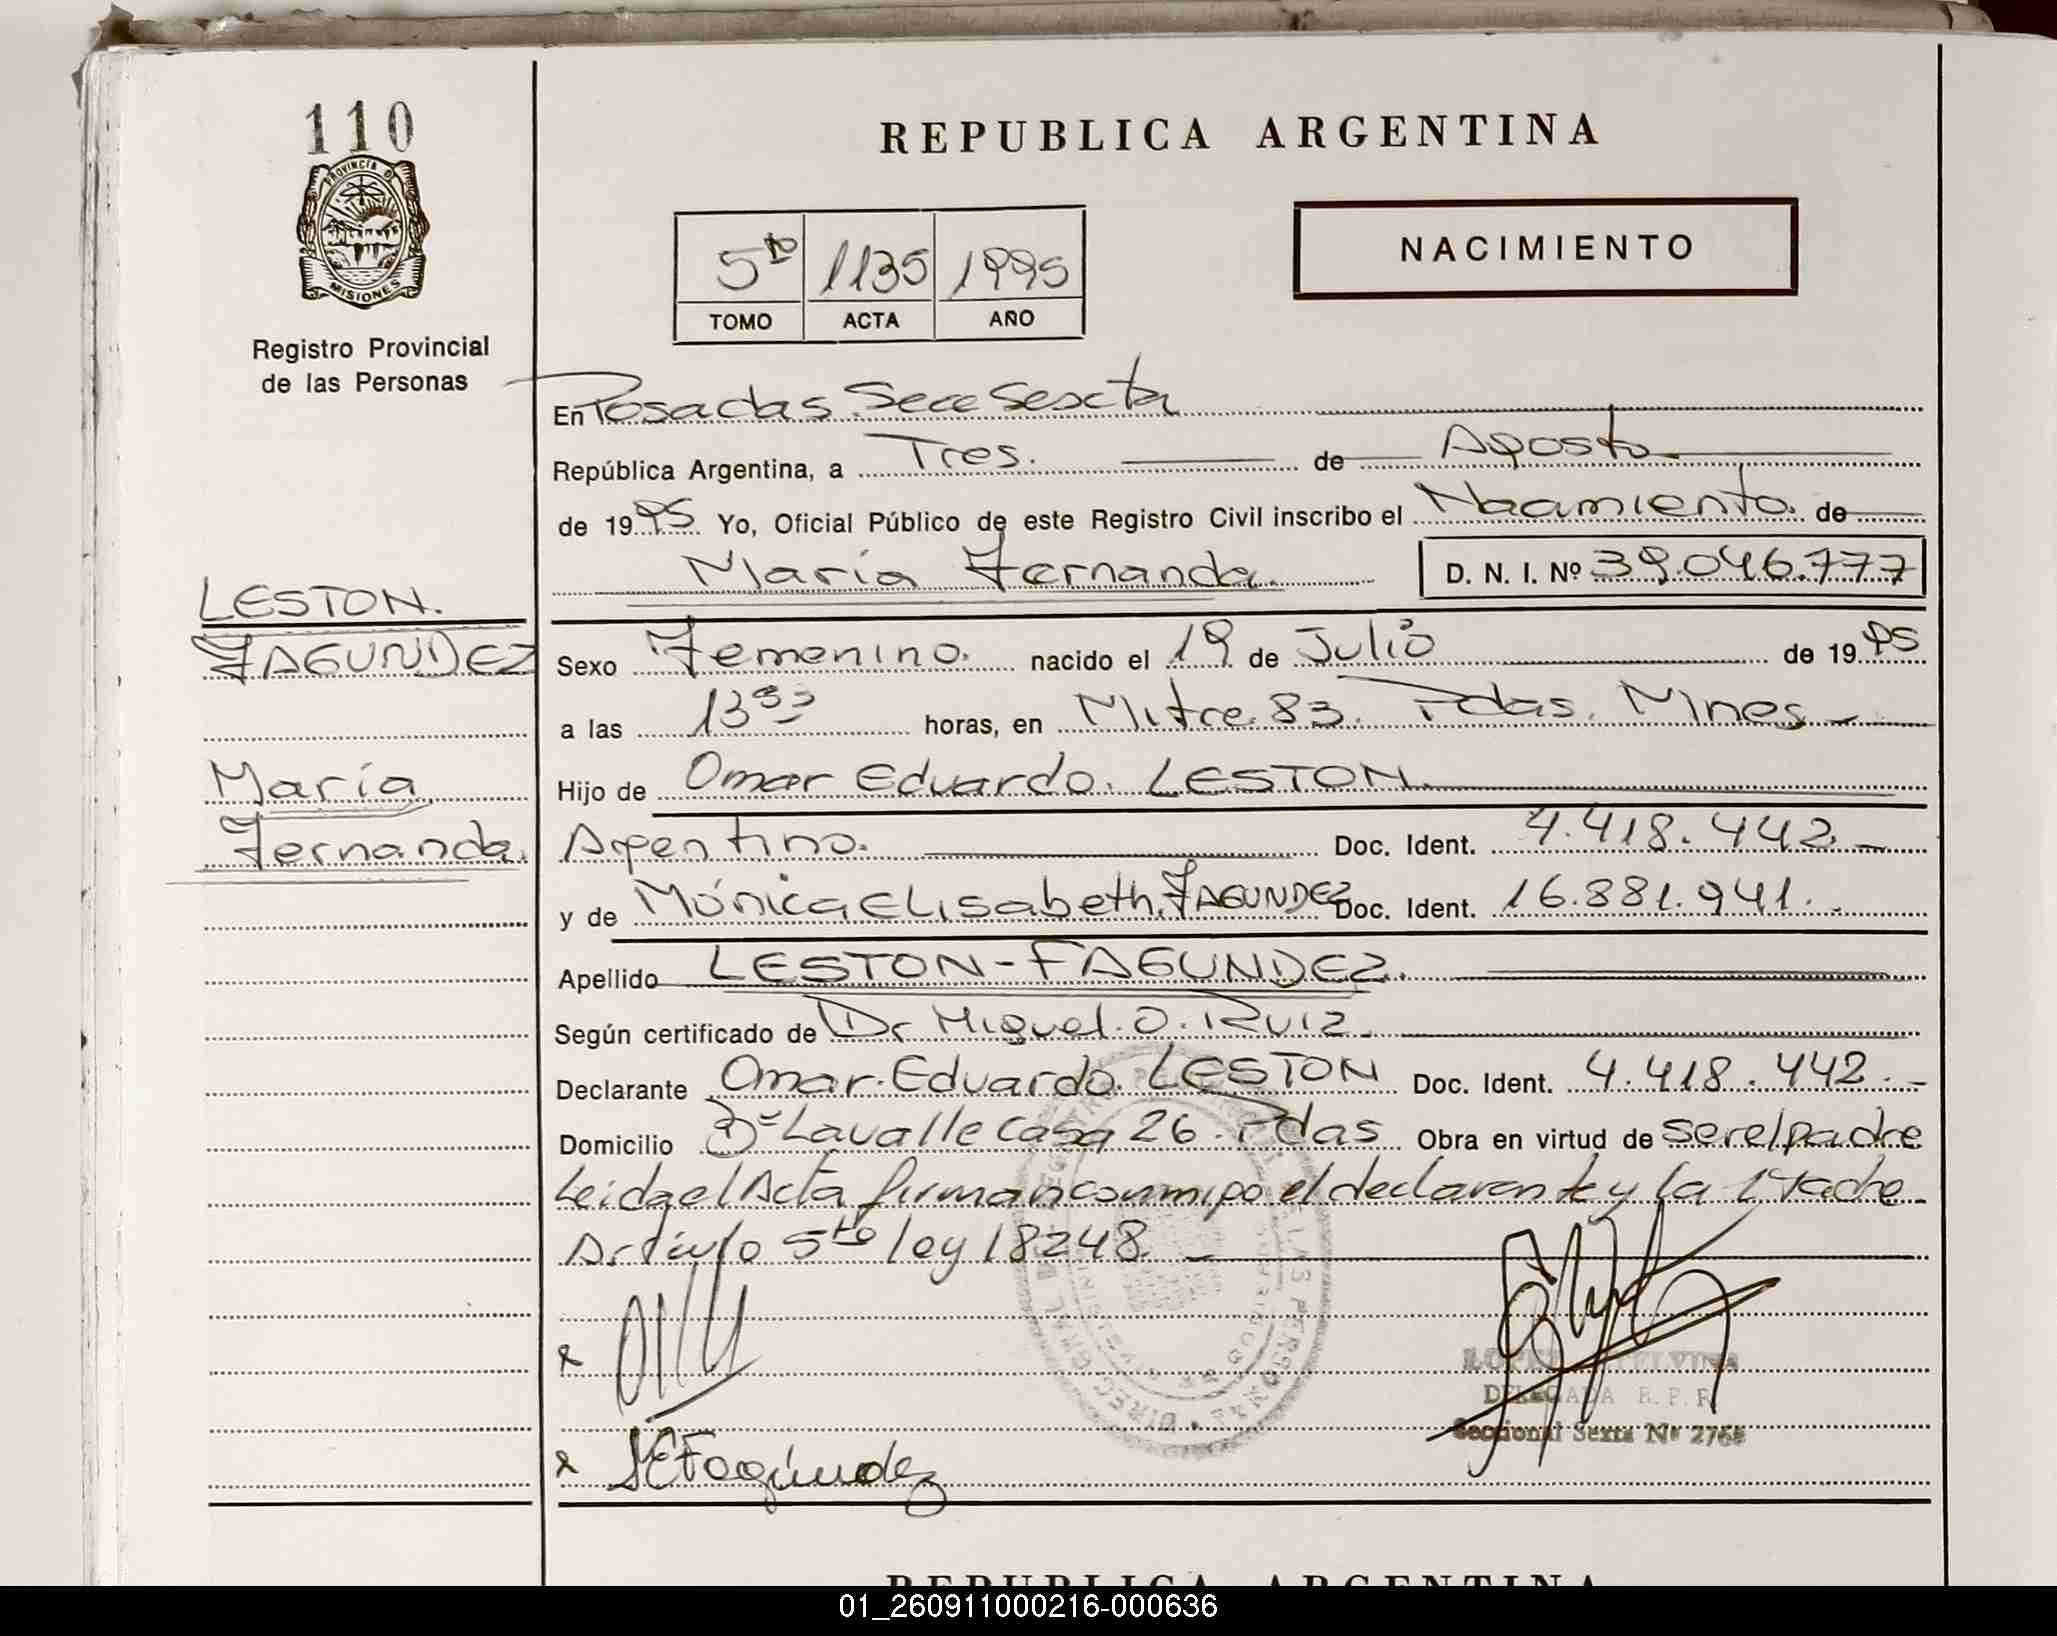 110
PROVINCIA DE
MISIONES
Registro Provincial
de las Personas
REPUBLICA ARGENTINA
5to 1135 1995
TOMO ACTA AÑO
NACIMIENTO
En Posadas Secc Sexta
República Argentina, a Tres. de Agosto
de 1995 Yo, Oficial Público de este Registro Civil inscribo el Nacimiento. de
María Fernanda. D. N. I. Nº 39.046.777
LESTON.
FAGUNDEZ
María
Fernanda.
Sexo Femenino. nacido el 19 de Julio de 1995
a las 13 horas, en Mitre 83. Pdas. Mnes
Hijo de Omar Eduardo. LESTON.
Argentino. Doc. Ident. 4.418.442
y de Mónica Elisabeth. FAGUNDEZ Doc. Ident. 16.881.941.
Apellido LESTON-FAGUNDEZ.
Según certificado de Dr Miguel. O. RUIZ.
Declarante Omar. Eduardo. LESTON Doc. Ident. 4.418.442.
Domicilio Bº Lavalle Casa 26. Pdas Obra en virtud de ser el padre
Leida el Acta firman conmigo el declarante y la Madre
Artículo 5to ley 18248.
MEFagúndez
DELEGADA R. P. P.
Seccional Sexta Nº 2768
REPUBLICA ARGENTINA
01_260911000216-000636